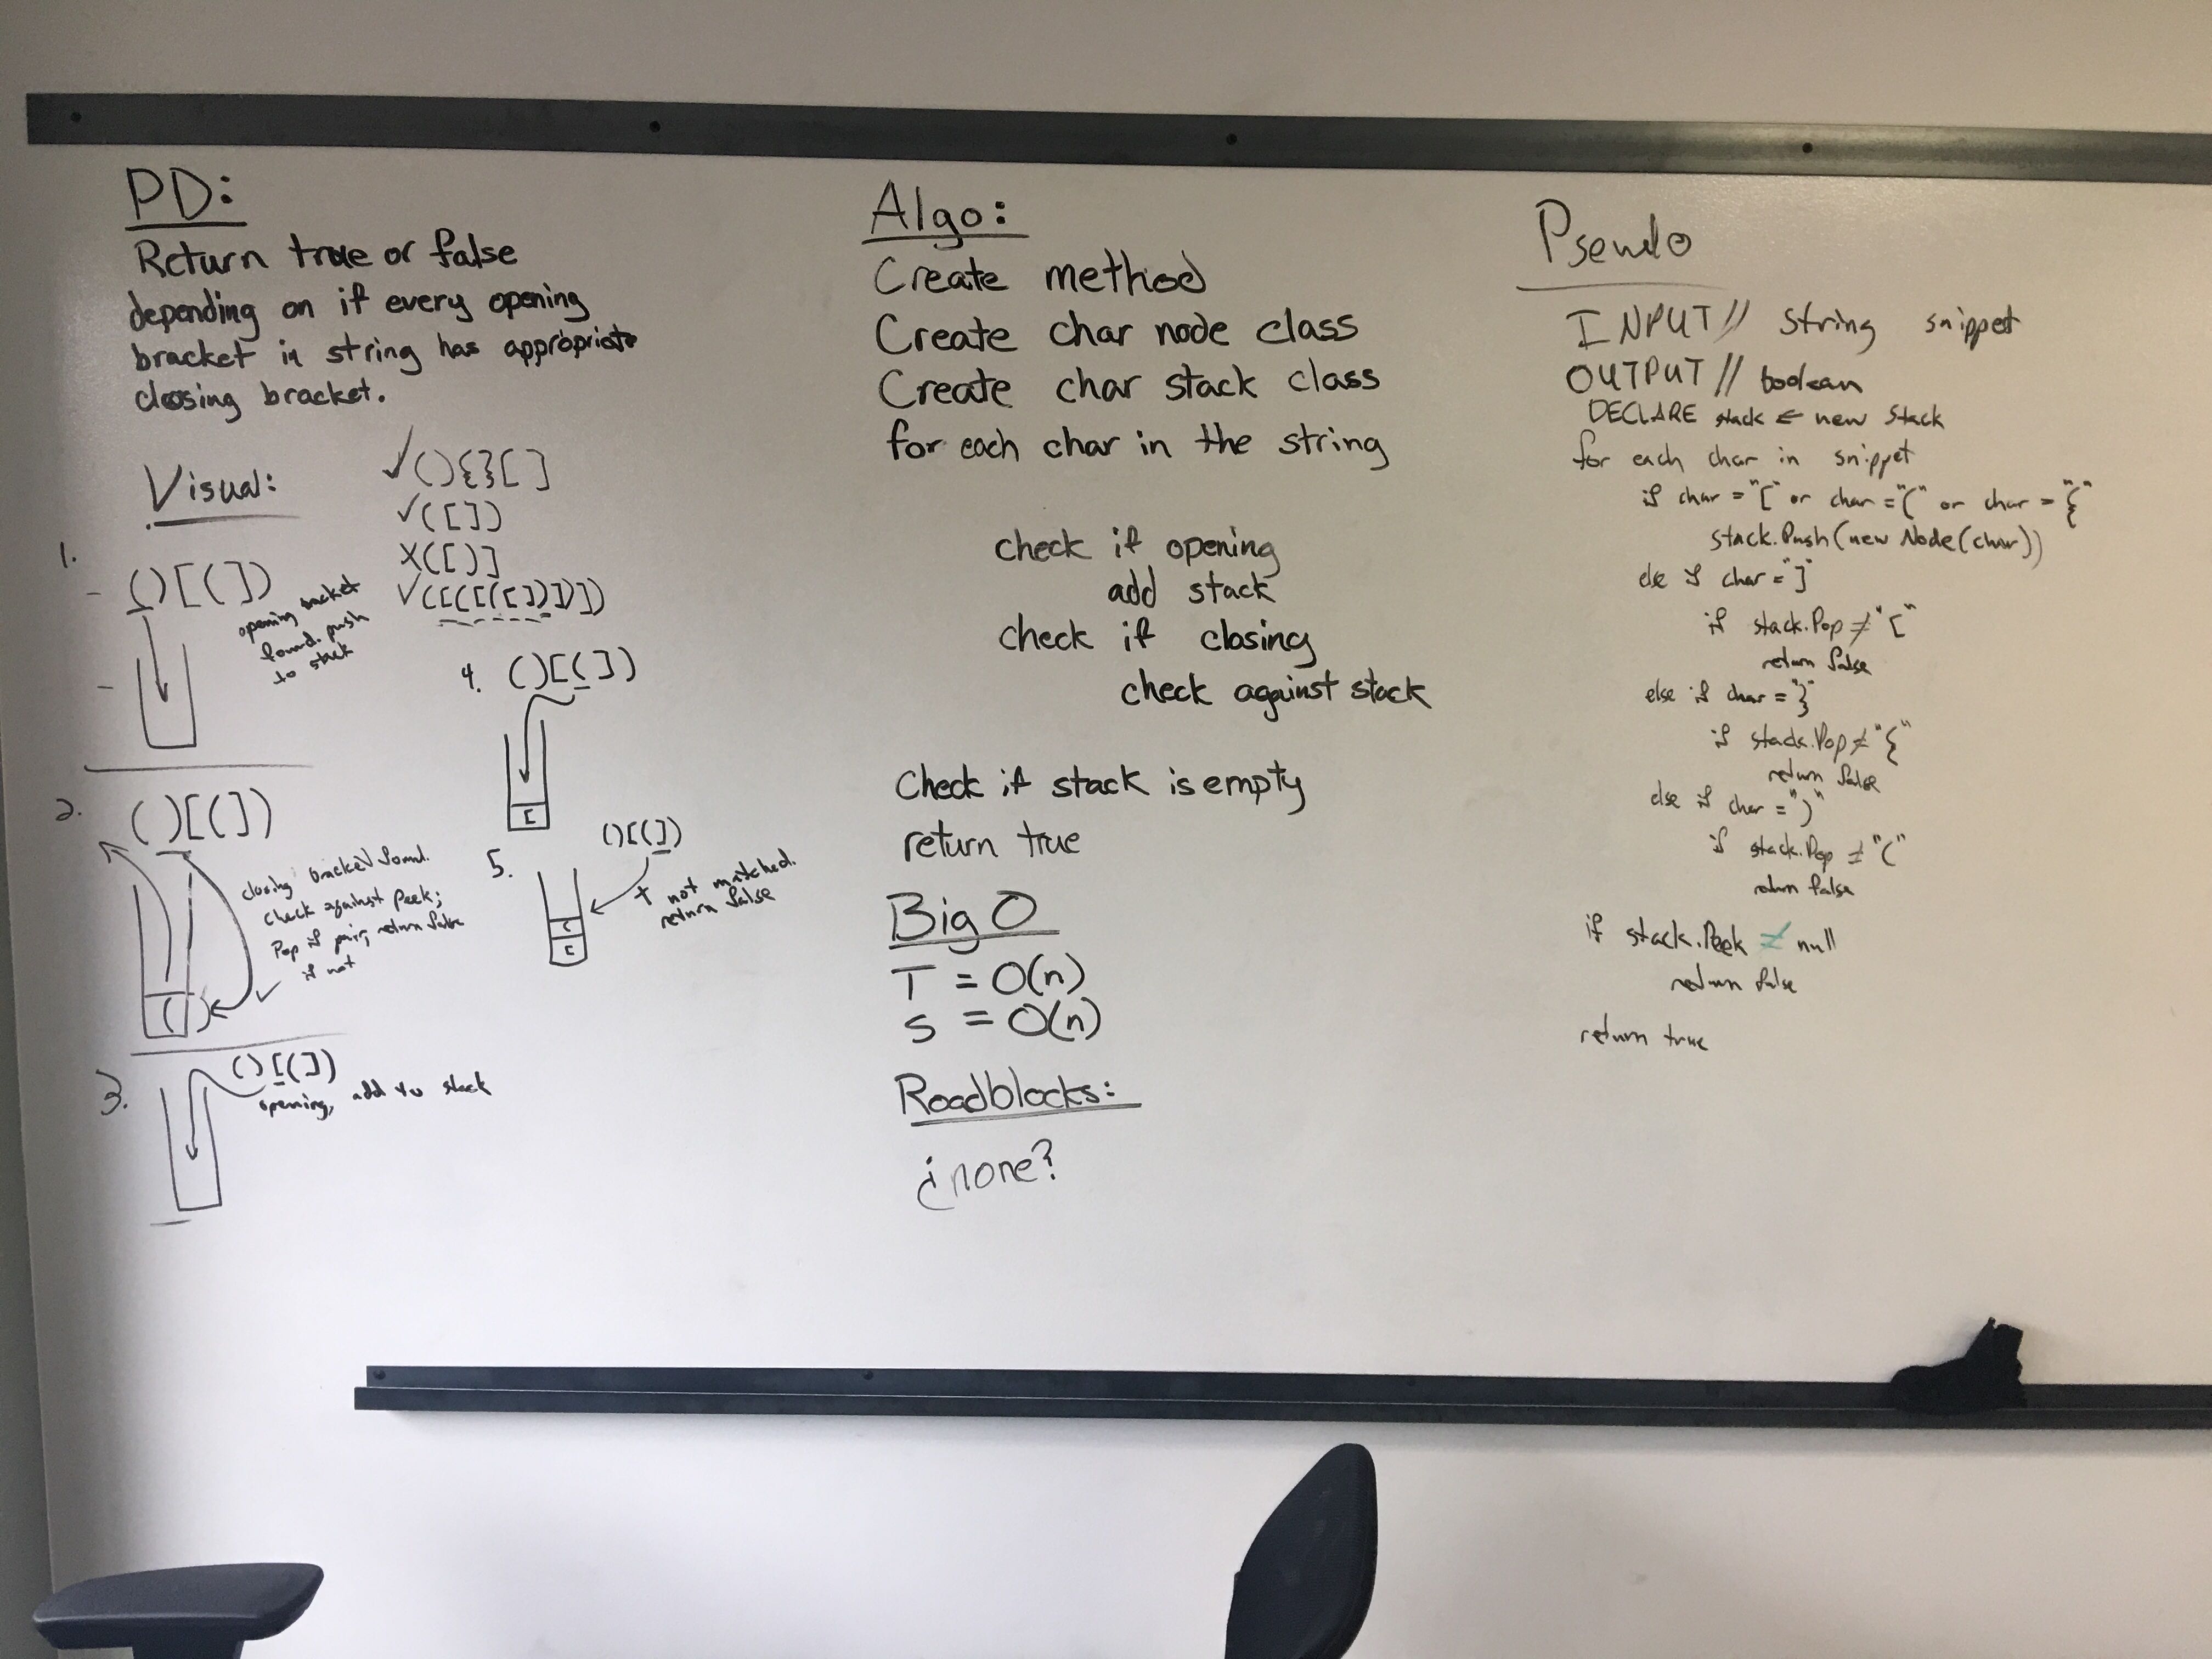 PD:
Return true or false
depending on if every opening
bracket in string has appropriate
closing bracket.
Visual:
✓(){}[]
✓([])
X([)]
1.
()[(])
opening bracket
found. push
to stack
4. ()[(])
[
2.
()[(])
closing bracket found.
check against Peek;
Pop if pair, return false
if not
(
✓
5.
()[(])
X not matched.
return false
(
[
3.
()[(])
opening, add to stack
Algo:
Create method
Create char node class
Create char stack class
for each char in the string
check if opening
add stack
check if closing
check against stack
Check if stack is empty
return true
Big O
T = O(n)
S = O(n)
Roadblocks:
¿none?
Pseudo
INPUT// string snippet
OUTPUT// boolean
DECLARE stack ← new Stack
for each char in snippet
if char = "[" or char = "(" or char = "{"
stack.Push(new Node(char))
else if char = "]"
if stack.Pop ≠ "["
return false
else if char = "}"
if stack.Pop ≠ "{"
return false
else if char = ")"
if stack.Pop ≠ "("
return false
if stack.Peek ≠ null
return false
return true